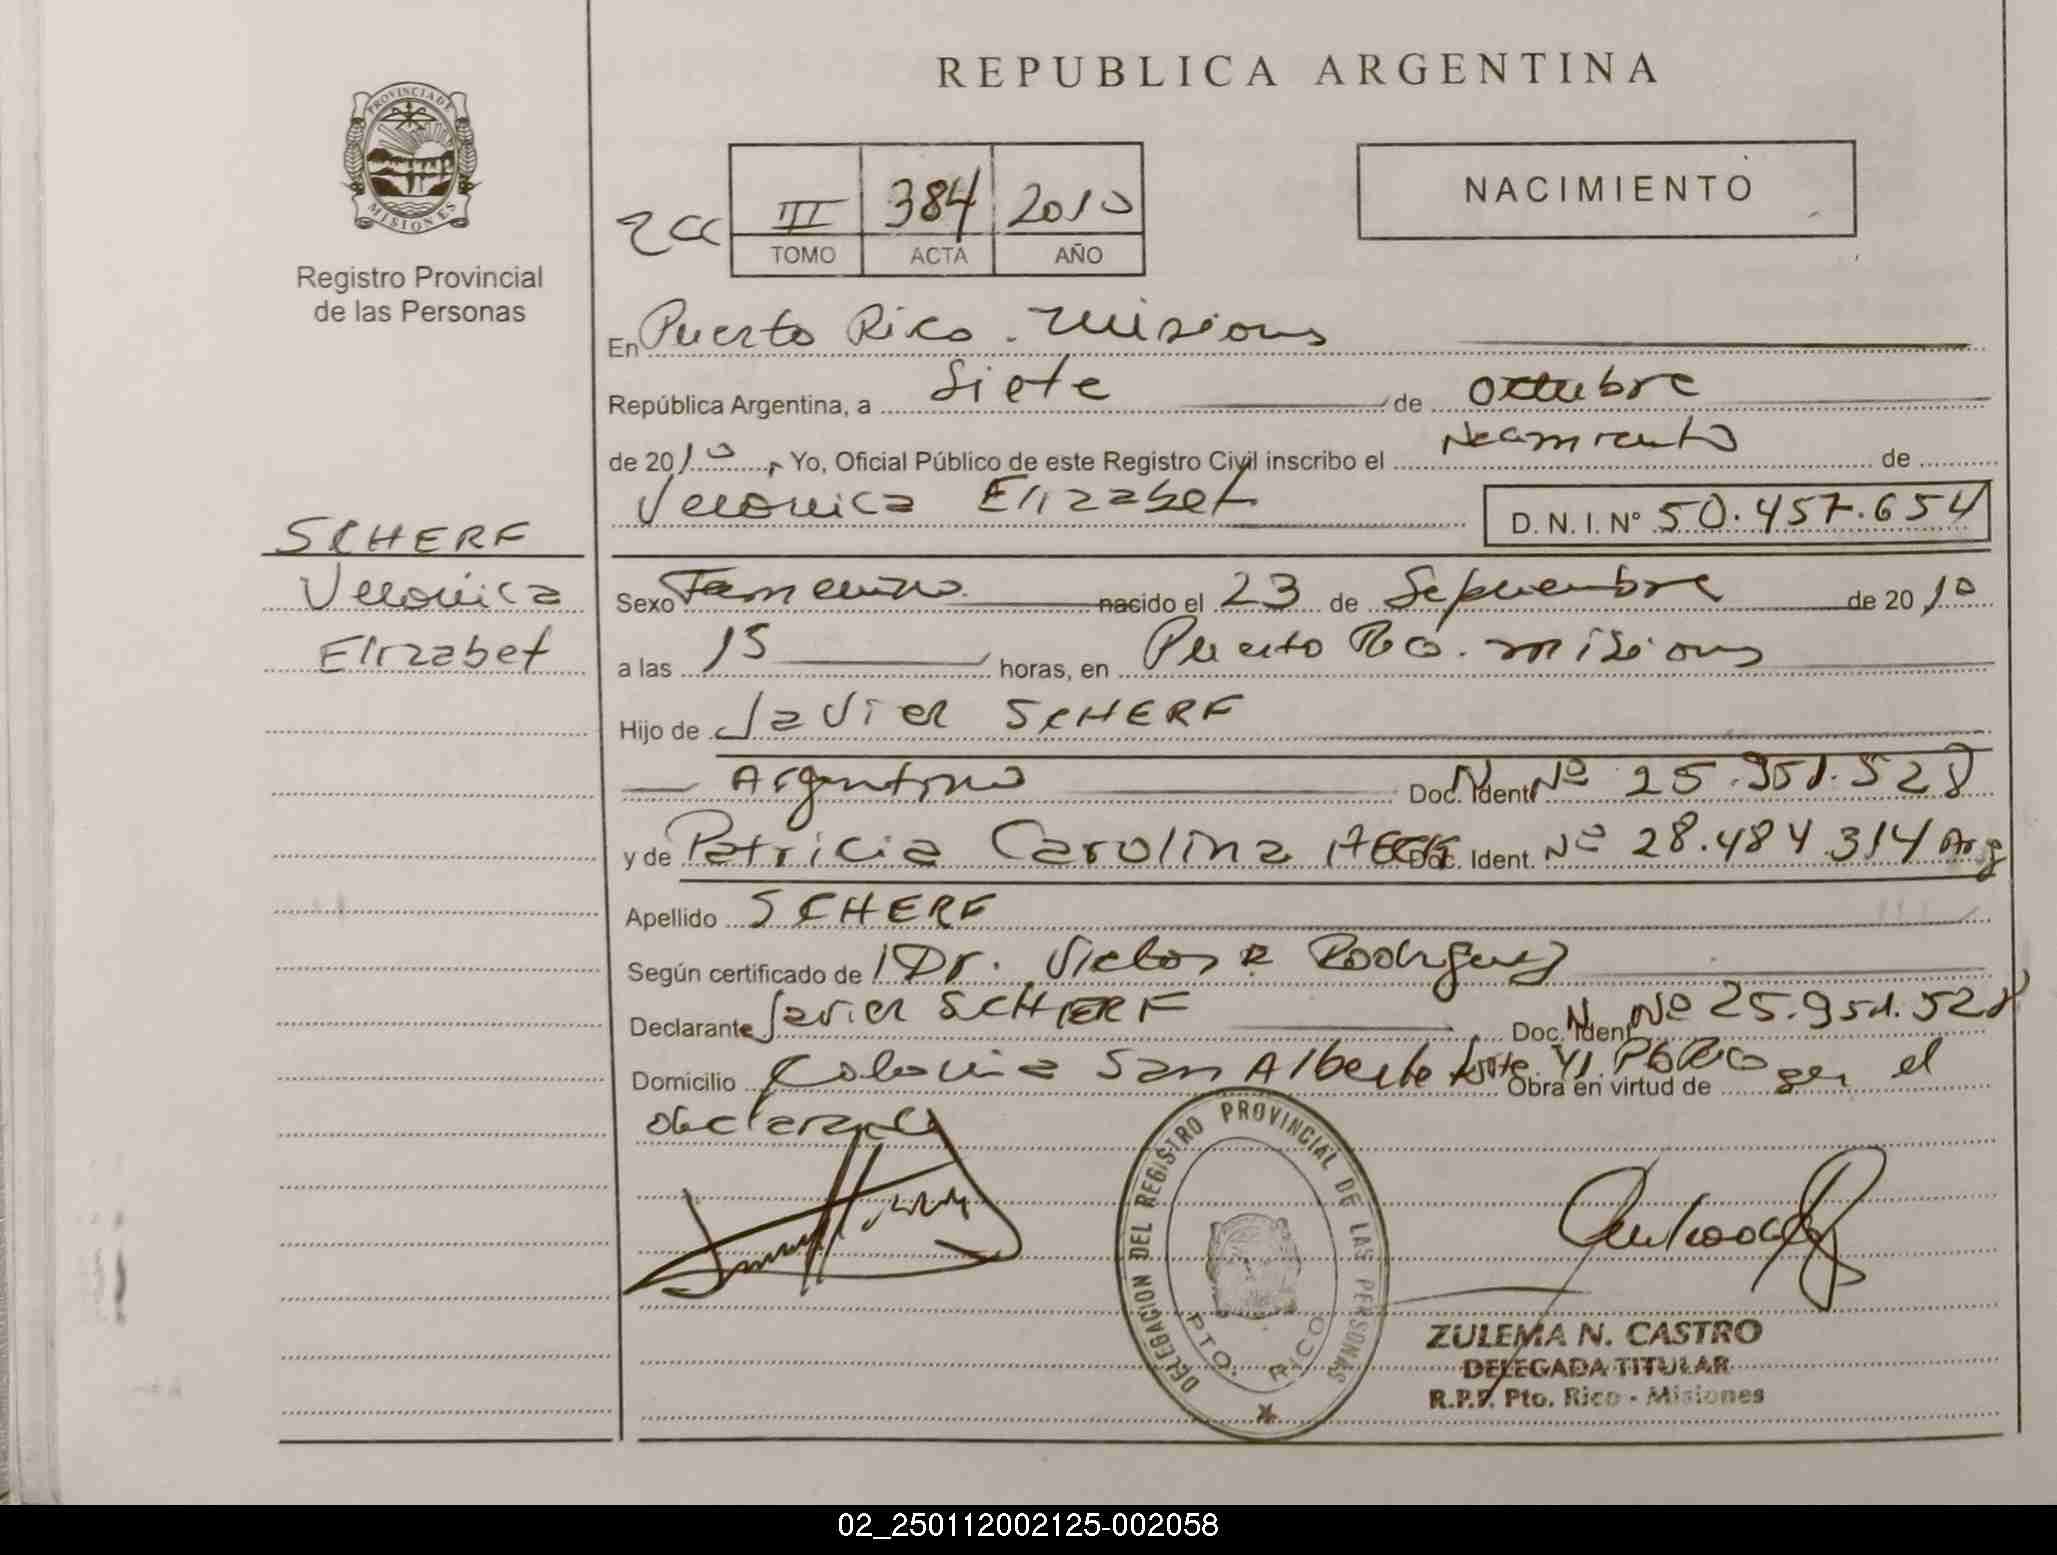 REPUBLICA ARGENTINA
PROVINCIA DE MISIONES
Registro Provincial
de las Personas
III 384 2010
TOMO ACTA AÑO
NACIMIENTO
En Puerto Rico. Misiones
República Argentina, a Siete de Octubre
de 2010, Yo, Oficial Público de este Registro Civil inscribo el Nacimiento de
Veronica Elizabet D. N. I. N° 50.457.654
SCHERF
Veronica
Elizabet
Sexo Femenino nacido el 23 de Septiembre de 2010
a las 15 horas, en Puerto Rico. Misiones
Hijo de Javier SCHERF
Argentino Doc. Ident. Nº 25.951.528
y de Patricia Carolina Doc. Ident. Nº 28.484.314 Arg
Apellido SCHERF
Según certificado de Dr. Victor R Rodriguez
Declarante Javier SCHERF Doc. Ident. Nº 25.951.528
Domicilio Colonia San Alberto Lote Pto Rico Obra en virtud de ser el
declarante
DELEGACION DEL REGISTRO PROVINCIAL DE LAS PERSONAS
PTO. RICO
ZULEMA N. CASTRO
DELEGADA TITULAR
R.P.P. Pto. Rico - Misiones
02_250112002125-002058